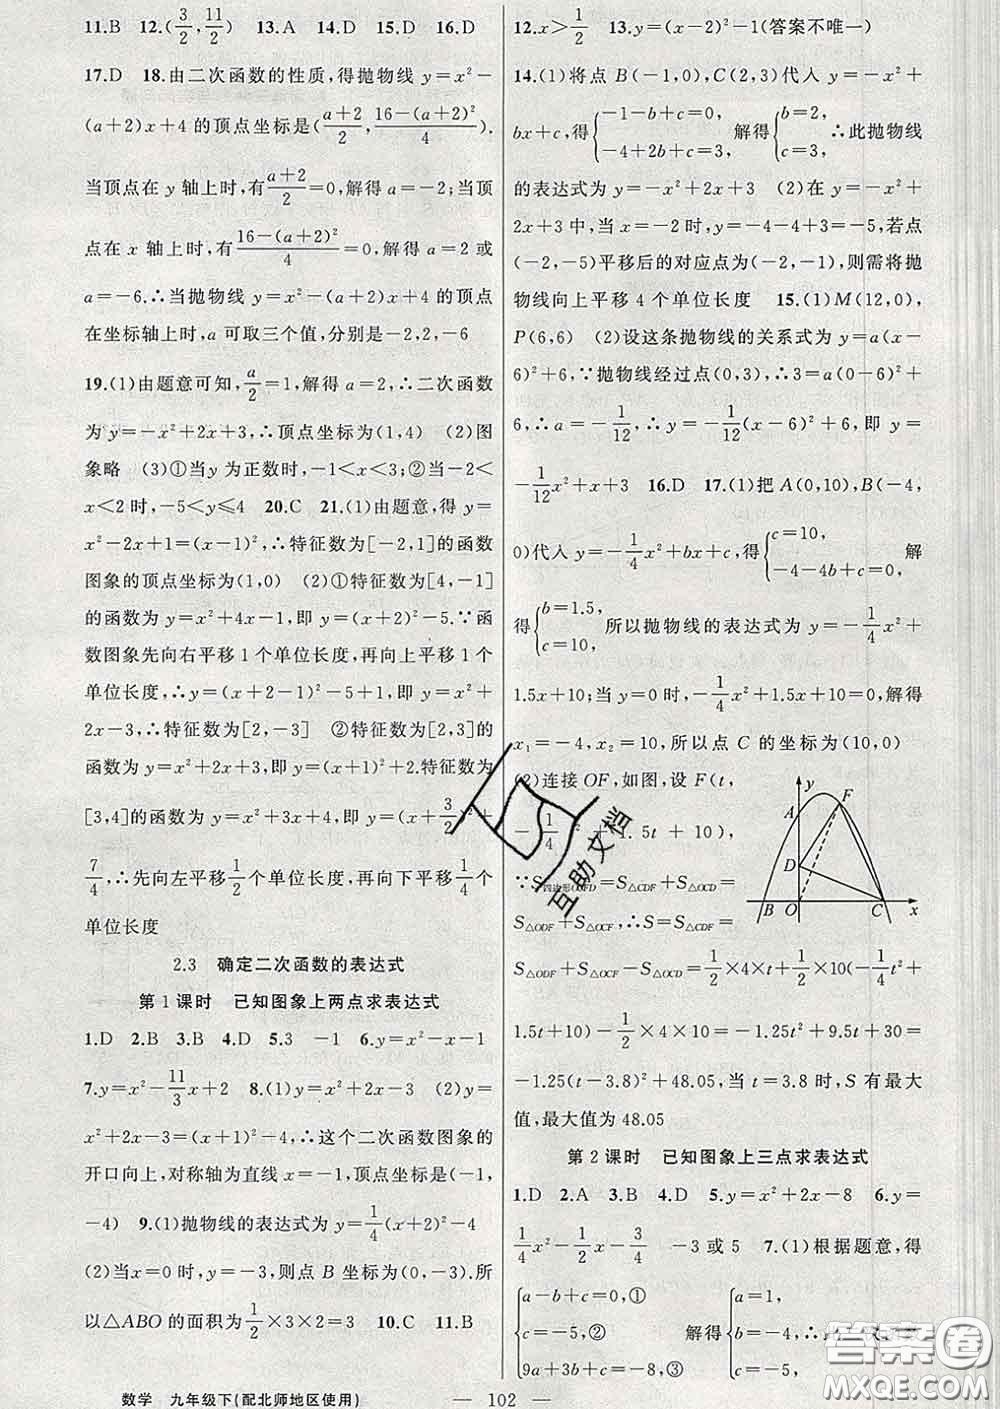 11.B 12.(3/2, 11/2) 13.A 14.D 15.D 16.D
17.D 18.由二次函数的性质,得抛物线 y=x²-
(a+2)x+4 的顶点坐标是((a+2)/2, (16-(a+2)²)/4).
当顶点在 y 轴上时,有(a+2)/2=0,解得 a=-2;当顶
点在 x 轴上时,有(16-(a+2)²)/4=0,解得 a=2 或
a=-6.∴当抛物线 y=x²-(a+2)x+4 的顶点
在坐标轴上时,a 可取三个值,分别是-2,2,-6
19.(1)由题意可知,a/2=1,解得 a=2,∴二次函数
为 y=-x²+2x+3,∴顶点坐标为(1,4) (2)图
象略 (3)①当y为正数时,-1<x<3;②当-2<
x<2时,-5<y≤4 20.C 21.(1)由题意,得 y=
x²-2x+1=(x-1)²,∴特征数为[-2,1]的函数
图象的顶点坐标为(1,0) (2)①特征数为[4,-1]
的函数为 y=x²+4x-1,即 y=(x+2)²-5.∵函
数图象先向右平移1个单位长度,再向上平移1个
单位长度,∴y=(x+2-1)²-5+1,即 y=x²+
2x-3,∴特征数为[2,-3] ②特征数为[2,3]的
函数为 y=x²+2x+3,即 y=(x+1)²+2.特征数为
[3,4]的函数为 y=x²+3x+4,即 y=(x+3/2)²+
7/4,∴先向左平移1/2个单位长度,再向下平移1/4个
单位长度
2.3 确定二次函数的表达式
第1课时 已知图象上两点求表达式
1.D 2.B 3.B 4.D 5.3 -1 6.y=x²-x-1
7.y=x²-11/3x+2 8.(1)y=x²+2x-3 (2)y=
x²+2x-3=(x+1)²-4,∴这个二次函数图象的
开口向上,对称轴为直线 x=-1,顶点坐标是(-1,
-4) 9.(1)抛物线的表达式为 y=1/4(x+2)²-4
(2)当x=0时,y=-3,则点 B 坐标为(0,-3).所
以△ABO 的面积为1/2×3×2=3 10.C 11.B
12.x>1/2 13.y=(x-2)²-1(答案不唯一)
14.(1)将点 B(-1,0),C(2,3)代入 y=-x²+
bx+c,得{-1-b+c=0, -4+2b+c=3, 解得{b=2, c=3, ∴此抛物线
的表达式为 y=-x²+2x+3 (2)在 y=-x²+
2x+3中,当 x=-2时,y=-4-4+3=-5,若点
(-2,-5)平移后的对应点为(-2,-1),则需将抛
物线向上平移 4 个单位长度 15.(1)M(12,0),
P(6,6) (2)设这条抛物线的关系式为 y=a(x-
6)²+6,∵抛物线经过点(0,3),∴3=a(0-6)²+
6,∴a=-1/12,∴y=-1/12(x-6)²+6,即 y=
-1/12x²+x+3 16.D 17.(1)把 A(0,10),B(-4,
0)代入 y=-1/4x²+bx+c,得{c=10, -4-4b+c=0, 解
得{b=1.5, c=10, 所以抛物线的表达式为 y=-1/4x²+
1.5x+10;当 y=0时,-1/4x²+1.5x+10=0,解得
x₁=-4,x₂=10,所以点 C 的坐标为(10,0)
(2)连接OF,如图,设 F(t,
-1/4t²+1.5t+10),
∵S四边形OCFD=S△CDF+S△OCD=
S△ODF+S△OCF,∴S=S△CDF=
S△ODF+S△OCF-S△OCD=1/2×4×t+1/2×10×(-1/4t²+
1.5t+10)-1/2×4×10=-1.25t²+9.5t+30=
-1.25(t-3.8)²+48.05,当 t=3.8时,S 有最大
值,最大值为48.05
y
A
F
D
B
O
C
x
第2课时 已知图象上三点求表达式
1.D 2.A 3.B 4.D 5.y=x²+2x-8 6.y=
1/4x²-1/2x-3/4 -3或5 7.(1)根据题意,得
{a-b+c=0,① c=-5,② 9a+3b+c=-8,③ 解得{a=1, b=-4, c=-5,
数学 九年级下(配北师地区使用)
— 102 —
互助文档
答案圈
MXQE.COM